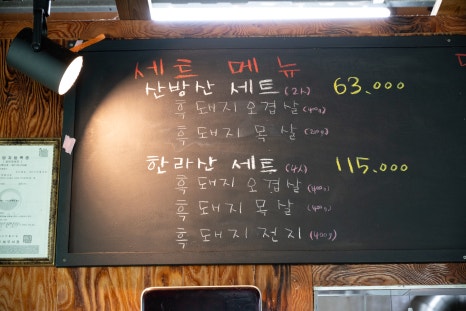 세트 메뉴
산방산 세트 (2人) 63.000
흑돼지 오겹살 (400g)
흑돼지 목살 (200g)
한라산 세트 (4人) 115.000
흑돼지 오겹살 (400g)
흑돼지 목살 (400g)
흑돼지 전지 (400g)